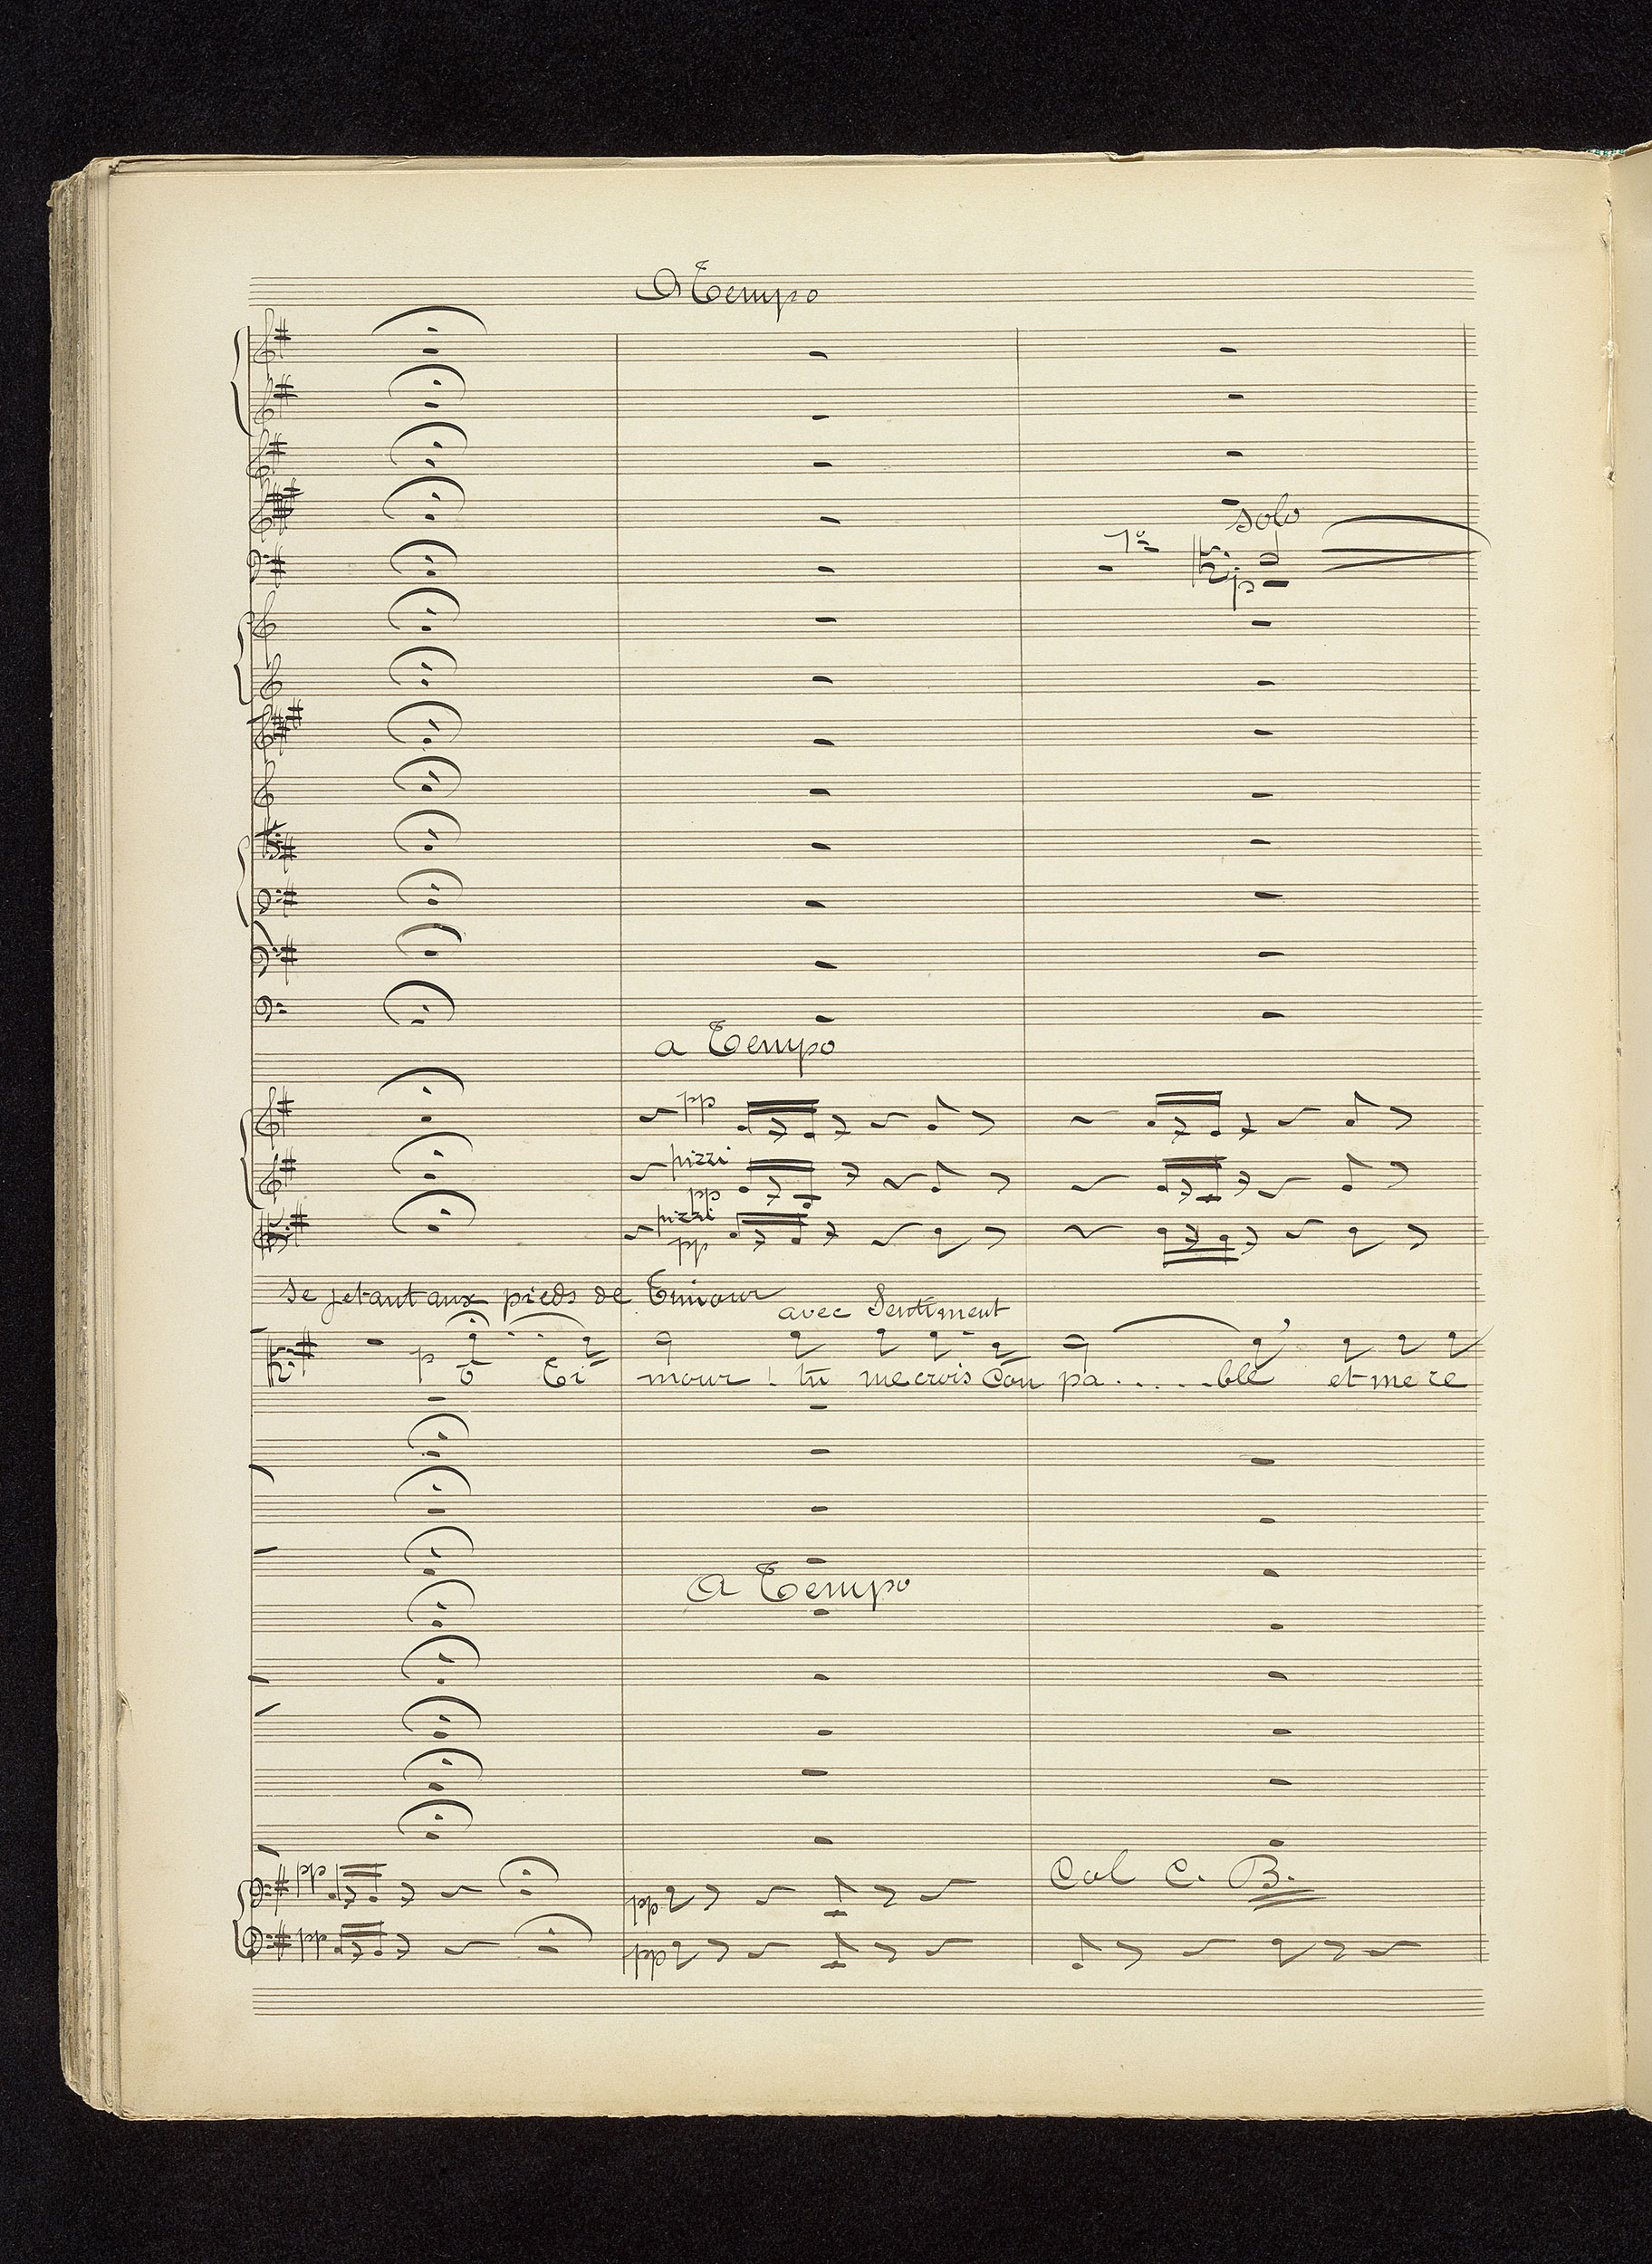 A Tempo
solo
1º
p
a Tempo
pp
pizzi
pp
pizzi
pp
Se jetant aux pieds de Timour
avec Sentiment
p
O Ti mour ! tu me crois Cou pa.....ble et me re
A Tempo
pp
pp
Col C. B.
pp
pp